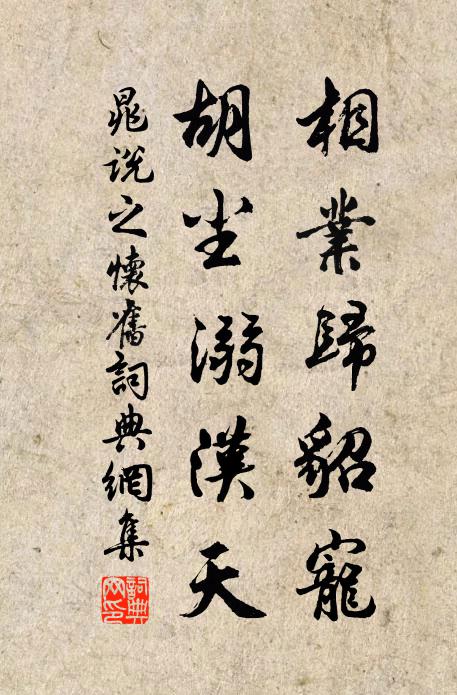 相業歸貂寵
胡尘溺漢天
晁说之懷舊詞典網集
詞典網印